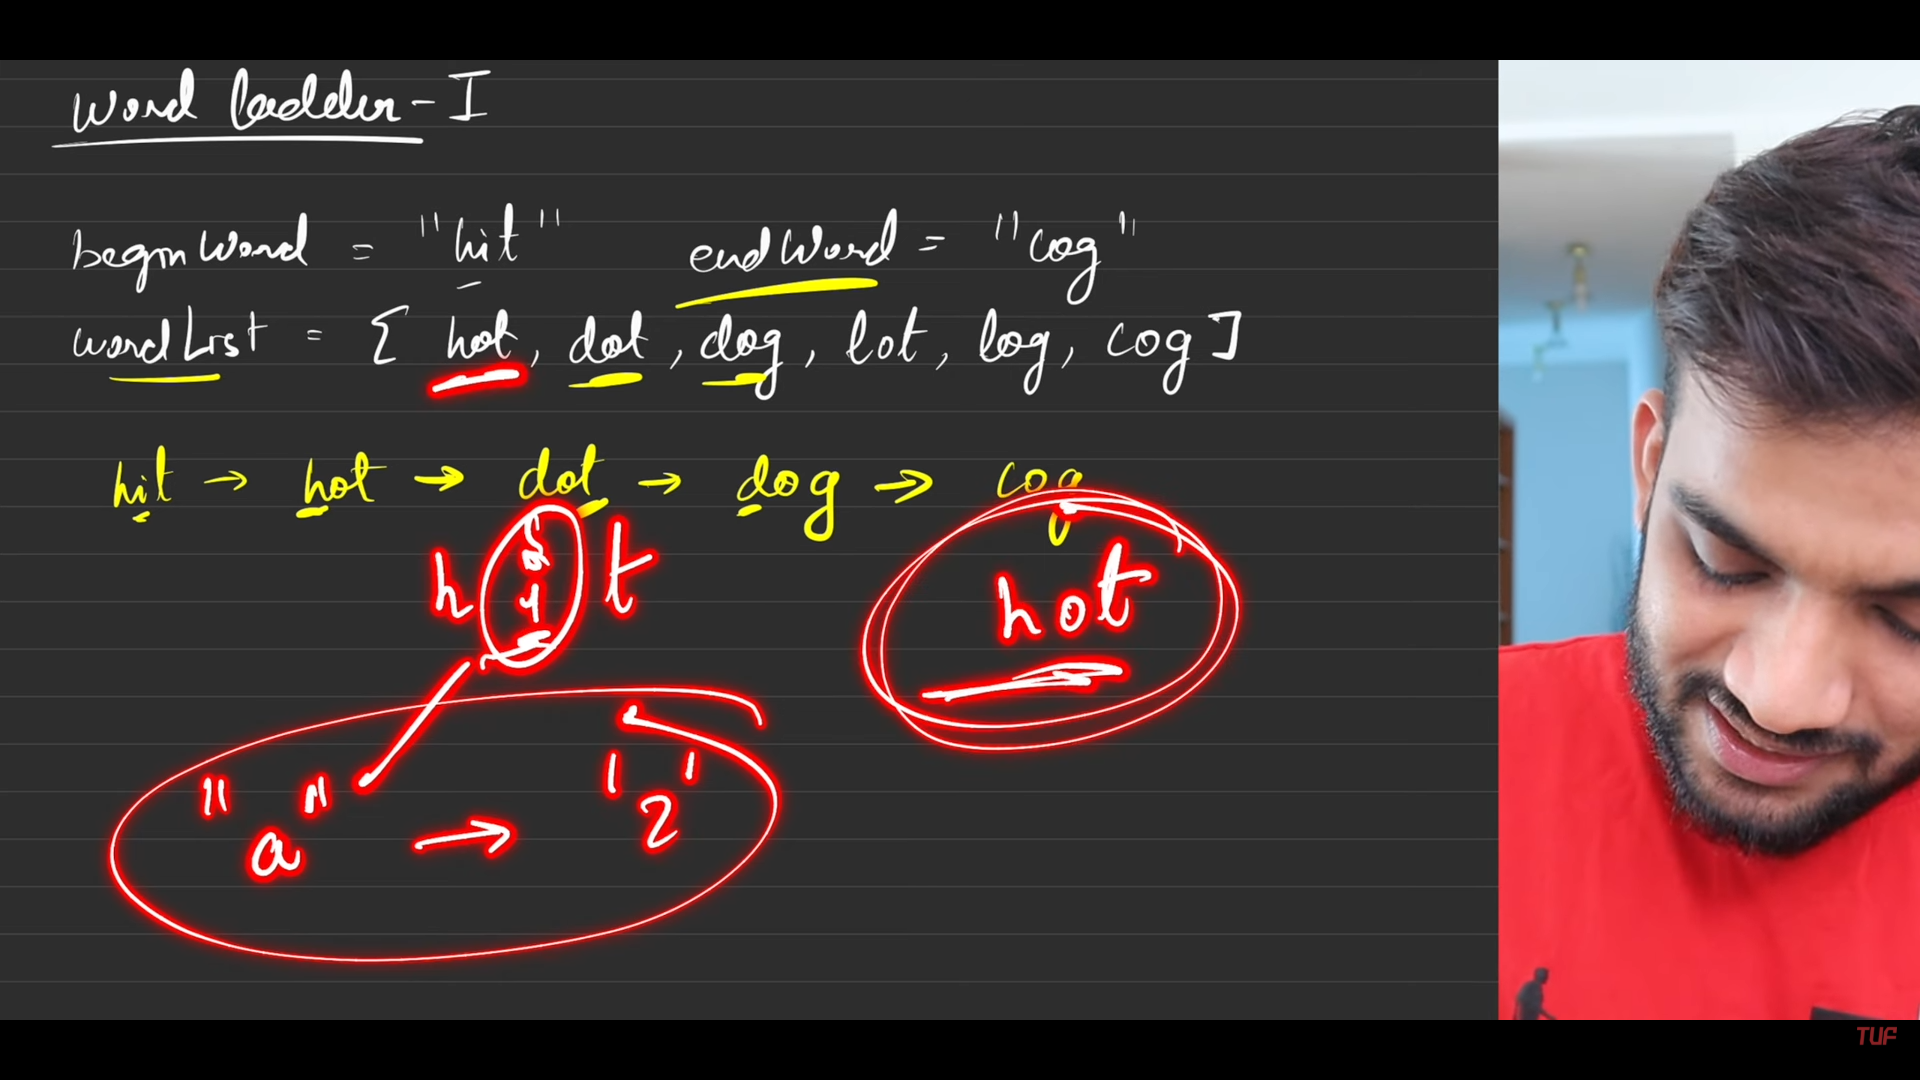 Word Ladder - I
beginWord = "hit" endWord = "cog"
wordList = { hot, dot, dog, lot, log, cog ]
hit → hot → dot → dog → cog
h t
hot
"a" → 'z'
TUF